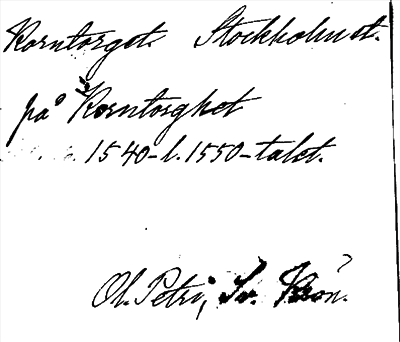 Korntorget. Stockholm st.
på Korntorghet
1540-l. 1550-talet.
Ol. Petri, Sv. Krön.